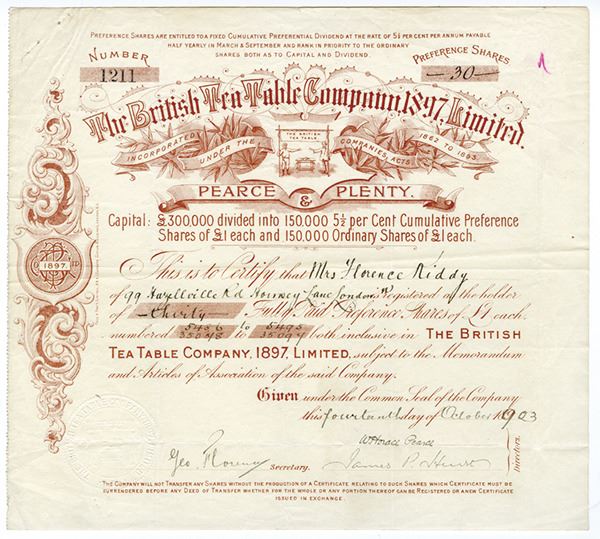 PREFERENCE SHARES ARE ENTITLED TO A FIXED CUMULATIVE PREFERENTIAL DIVIDEND AT THE RATE OF 5½ PER CENT PER ANNUM PAYABLE
HALF YEARLY IN MARCH & SEPTEMBER AND RANK IN PRIORITY TO THE ORDINARY
SHARES BOTH AS TO CAPITAL AND DIVIDEND.
NUMBER
1211
PREFERENCE SHARES
30
The British Tea Table Company, 1897, Limited.
INCORPORATED UNDER THE COMPANIES ACTS 1862 TO 1893
THE BRITISH
TEA TABLE
PEARCE & PLENTY.
Capital: £300,000 divided into 150,000 5½ per Cent Cumulative Preference
Shares of £1 each and 150,000 Ordinary Shares of £1 each.
1897.
This is to Certify that Mrs Florence Kiddy
of 99 Hazellville Rd Hornsey Lane London N Registered as the holder
of Thirty Fully Paid Preference Shares of £1 each,
numbered to both inclusive in THE BRITISH
TEA TABLE COMPANY, 1897, LIMITED, subject to the Memorandum
and Articles of Association of the said Company.
Given under the Common Seal of the Company
this fourteenth day of October 1903
W Horace Pearce
Geo. Secretary. James P. Directors.
THE COMPANY WILL NOT TRANSFER ANY SHARES WITHOUT THE PRODUCTION OF A CERTIFICATE RELATING TO SUCH SHARES WHICH CERTIFICATE MUST BE
SURRENDERED BEFORE ANY DEED OF TRANSFER WHETHER FOR THE WHOLE OR ANY PORTION THEREOF CAN BE REGISTERED OR A NEW CERTIFICATE
ISSUED IN EXCHANGE.